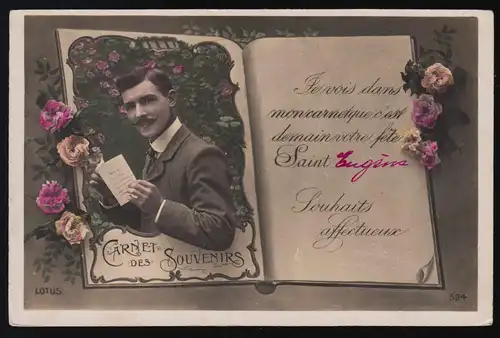 CARNET
DES SOUVENIRS
Je vois dans
mon carnet que c'est
demain votre fête
Saint Eugène
Souhaits
affectueux
LOTUS
584